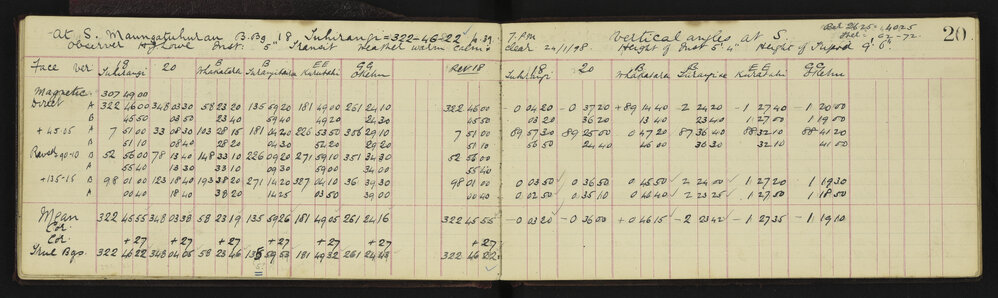 At S. Maungatuhuran B.Bg 18 Tuhirangi = 322-46-22 4.39
Observer H J Lowe Inst. 5" Transit Weather warm calm
Face Ver 18 Tuhirangi 20 B Whakatara B Turangitara EE Kuratahi GG Rev 18
Magnetic 307 49.00
Direct A 322 46 00 348 03 30 58 23 20 135 59 20 181 49 00 261 24 10 322 46 00
B 45 50 03 50 23 40 59 40 49 20 24 30 45 50
+45-05 A 7 51 00 33 08 30 103 28 15 181 04 20 226 53 50 306 29 10 7 51 00
B 51 10 08 40 28 20 04 30 52 20 29 20 51 10
+90-10 B 52 56 00 78 13 40 148 33 10 226 09 20 271 59 10 351 34 30 52 56 00
A 55 40 13 30 33 10 09 30 59 00 34 00 55 40
+135-15 B 98 01 00 123 18 40 193 38 20 271 14 20 327 04 10 36 39 30 98 01 00
A 00 40 18 40 38 20 14 25 03 50 39 00 00 40
Mean 322 45 55 348 03 38 58 23 19 135 59 26 181 49 05 261 24 16 322 45 55
Cor.
Cor +27 +27 +27 +27 +27 +27 +27
True Bgs. 322 46 22 348 04 05 58 23 46 135 59 53 181 49 32 261 24 43 322 46 22
20
7. P.M Vertical angles at S.
Clear 24/11/98 Height of Inst 5'-4" Height of 9' 6"
18 20 B B EE GG
-0 04 20 -0 37 20 +89 14 40 -2 24 20 -1 27 40 -1 20 00
03 20 36 20 13 40 23 40 1 27 00 1 19 00
89 57 30 89 25 00 0 47 20 87 36 40 88 32 10 88 41 20
56 50 24 40 46 00 36 30 32 10 41 00
0 03 50 0 36 50 0 45 50 2 24 00 1 27 20 1 19 30
0 02 50 0 35 10 0 44 40 2 23 25 1 27 50 1 18 50
-0 03 20 -0 36 00 +0 46 15 -2 23 42 -1 27 35 -1 19 10